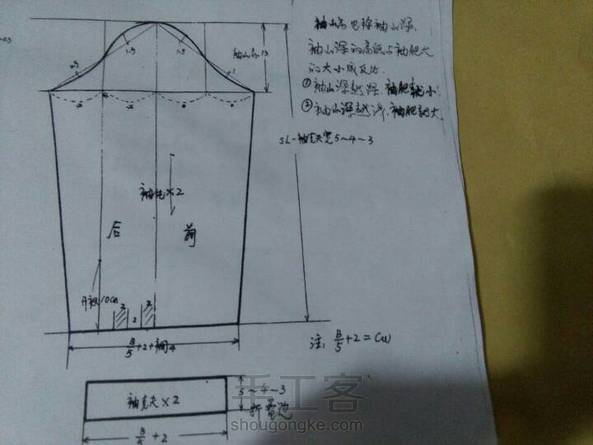 袖山高也称袖山深,
袖山深的高低与袖肥大
的大小成反比
①袖山深越深,袖肥越小.
②袖山深越浅,袖肥越大.
袖山高13
1.5
1.5
SL-袖克夫宽5~4~3
袖片×2
后
前
开衩10cm
2
2
2
B/5+2+褶4
注: B/5+2=CW
袖克夫×2
5~4~3
B/5+2
手工客
shougongke.com